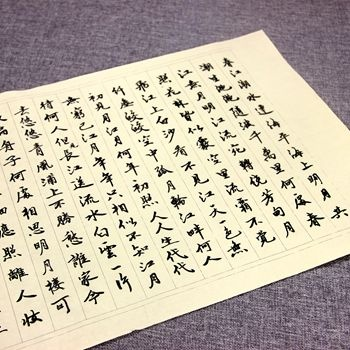 春江潮水連海平海上明月共
潮生灩灩隨波千萬里何處春
江無月明江流宛轉繞芳甸月
照花林皆似霰空裏流霜不覺
飛汀上白沙看不見江天一色無
纖塵皎皎空中孤月輪江畔何人
初見月江月何年初照人人生代代
無窮已江月年年只相似不知江月
待何人但見長江送流水白雲一片
去悠悠青楓浦上不勝愁誰家今
扁舟子何處相思明月樓可
照離人妝